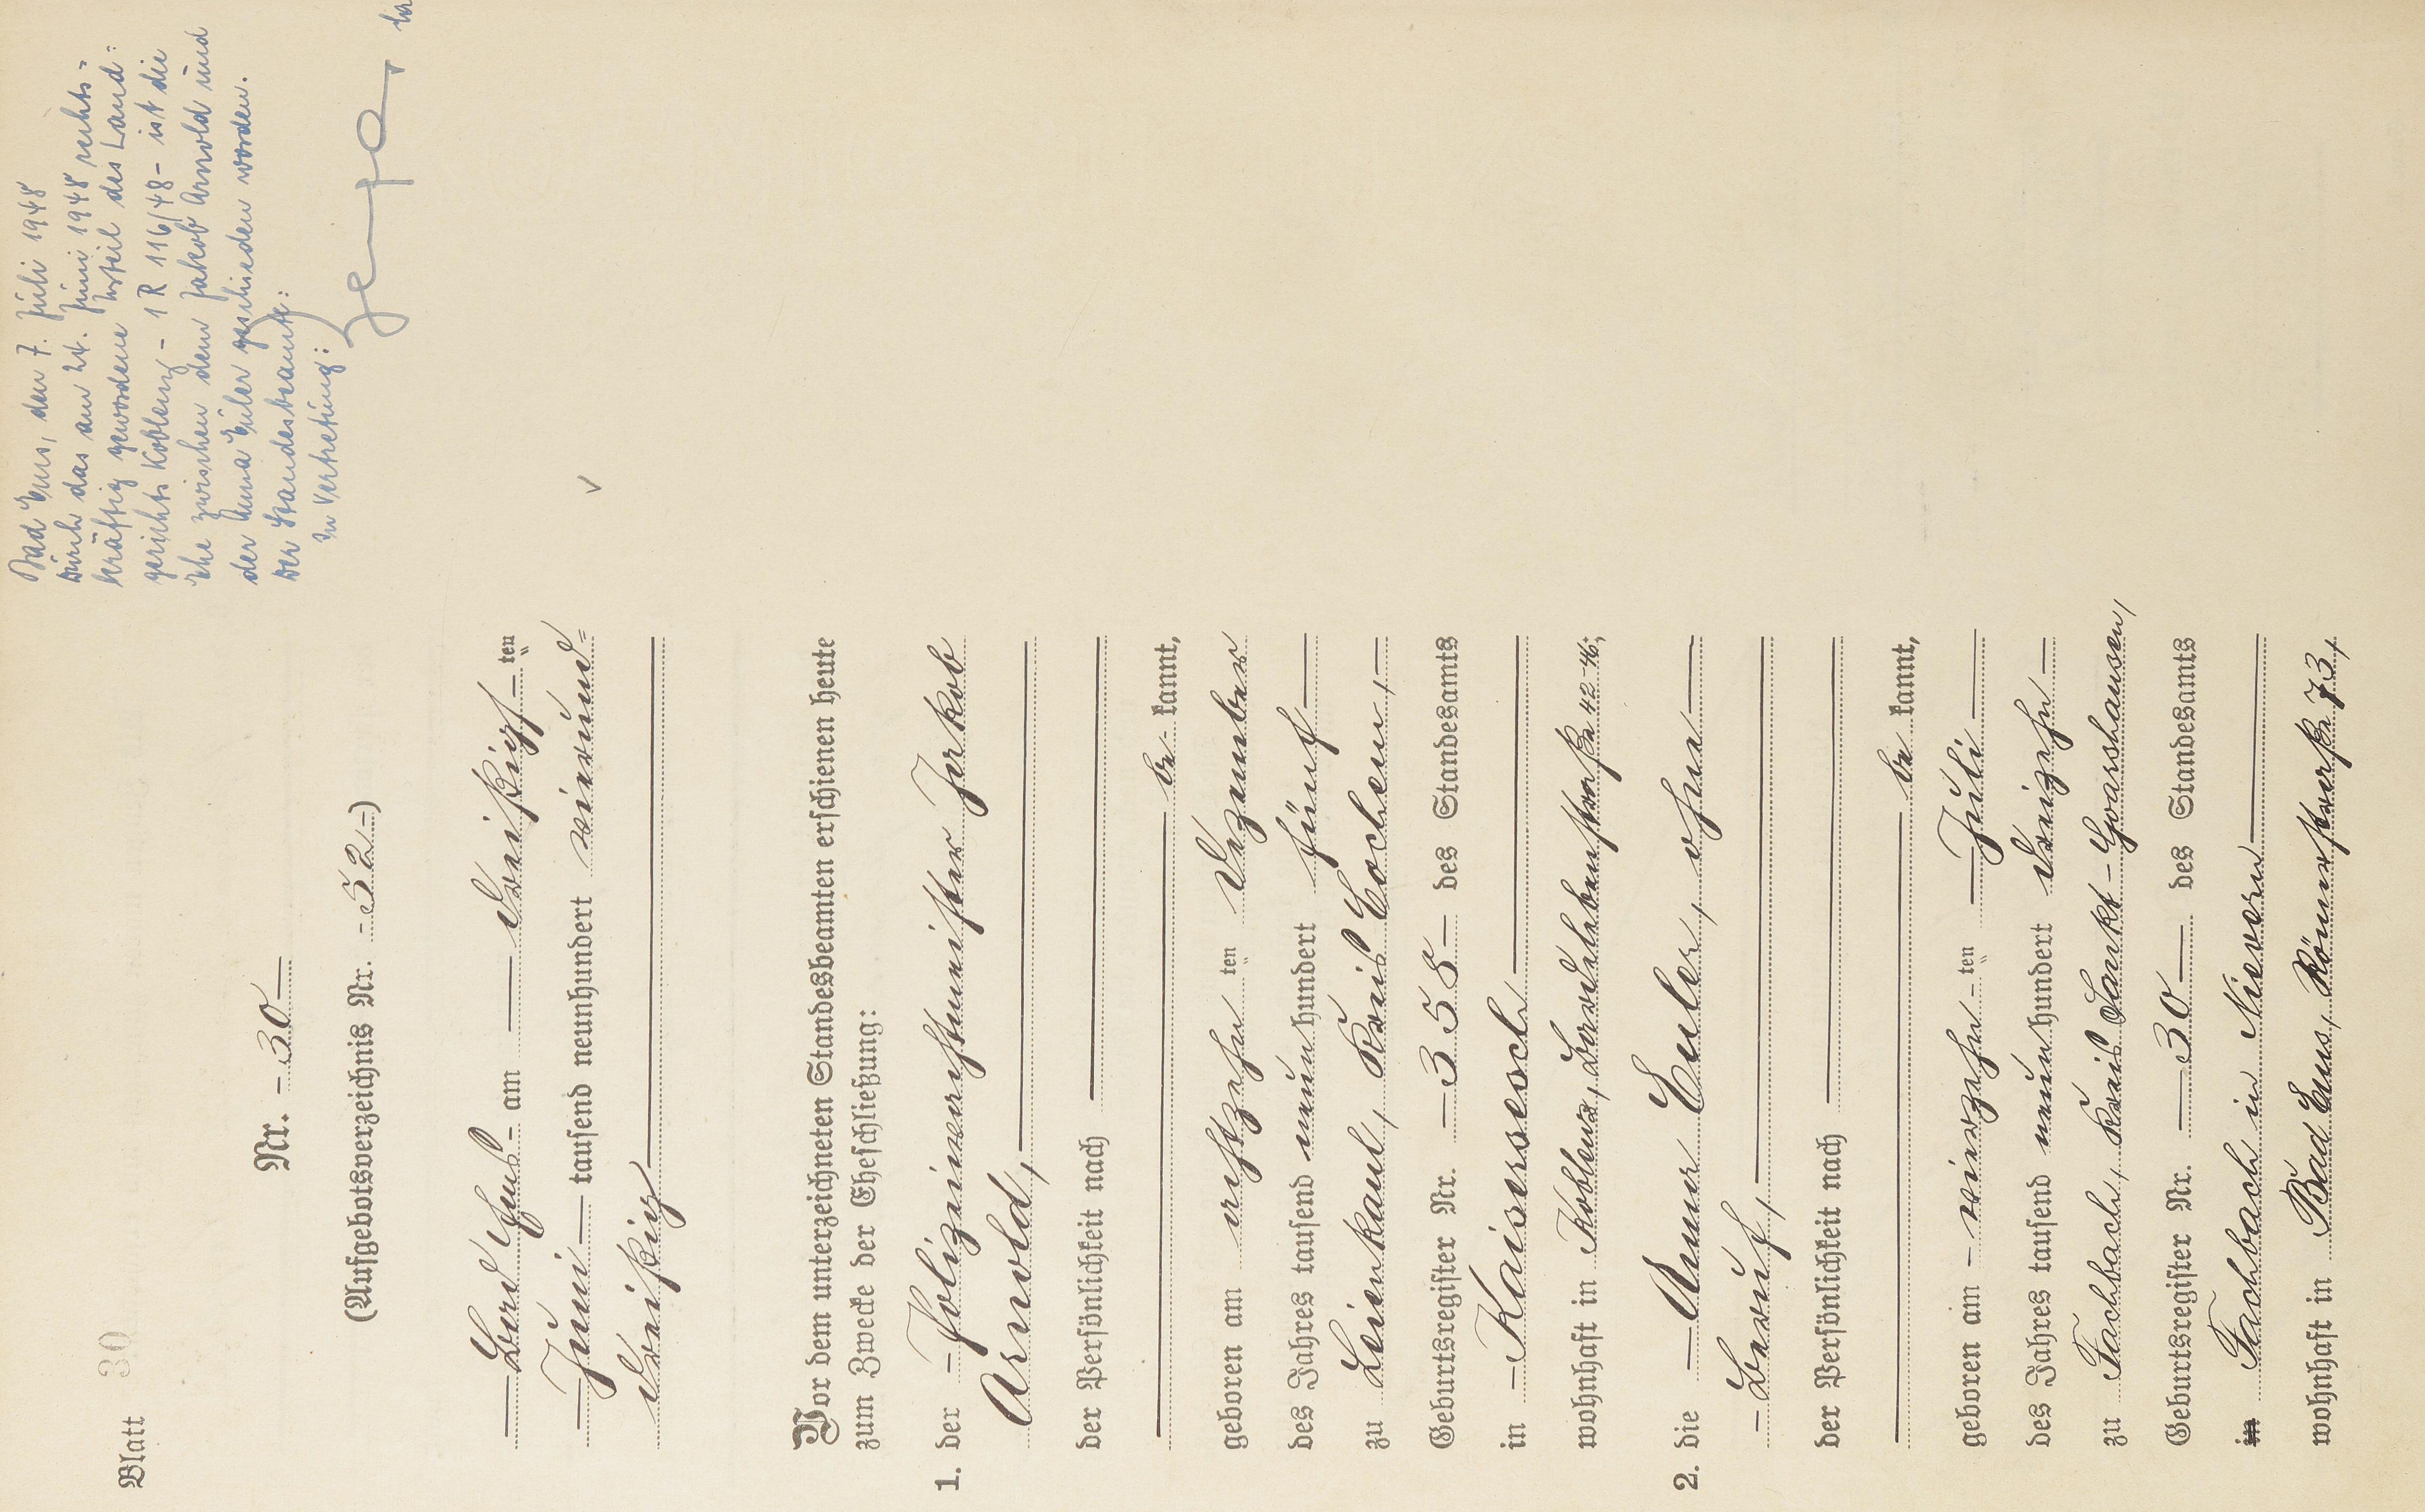 Blatt 30
Bad Ems, den 7. Juli 1948
Durch das am 24. Juni 1948 rechts-
kräftig gewordene Urteil des Land-
gerichts Koblenz - 1 R 116/48 - ist die
Ehe zwischen dem Jakob Arnold und
der Anna Euler geschieden worden.
Der Standesbeamte:
In Vertretung:
Nr. - 30 -
(Aufgebotsverzeichnis Nr. - 52 -)
- Bad Ems - am - dreißigs - ten
- Juni - tausend neunhundert vierund-
dreißig
Vor dem unterzeichneten Standesbeamten erschienen heute
zum Zwecke der Eheschließung:
1. der - Polizeiwachtmeister Jakob
Arnold, -
der Persönlichkeit nach
be- kannt,
geboren am achtzehn ten Dezember
des Jahres tausend neunhundert fünf -
zu Leienkaul, Kreis Cochem, -
Geburtsregister Nr. - 358 - des Standesamts
in - Kaisersesch
wohnhaft in Koblenz, straße 42-46;
2. die - Anna Euler, ohne -
- Beruf, -
der Persönlichkeit nach
be kannt,
geboren am - vierzehn - ten - Juli -
des Jahres tausend neunhundert dreizehn -
zu Fachbach, Kreis Sankt-Goarshausen,
Geburtsregister Nr. - 30 - des Standesamts
in Fachbach in Nievern
wohnhaft in Bad Ems, Römerstraße 73,